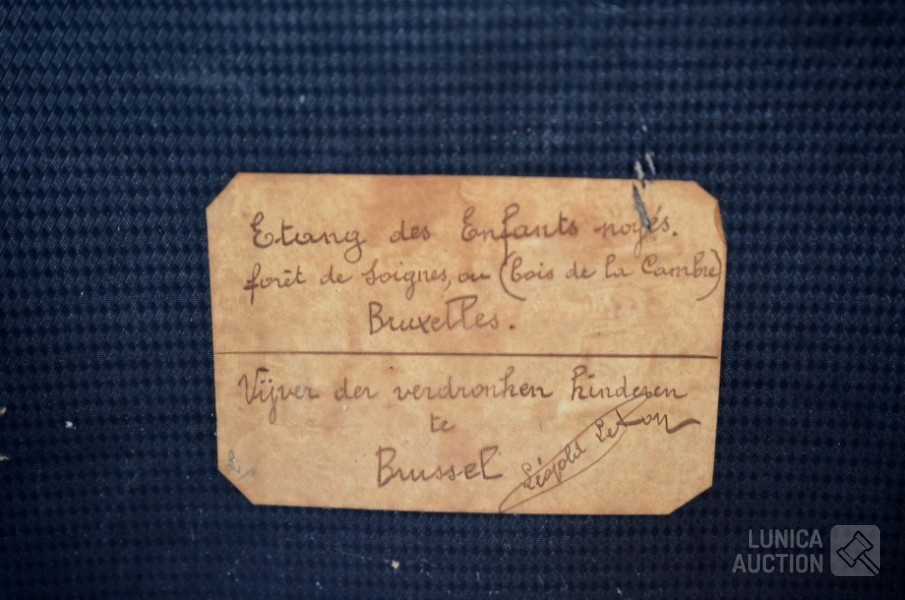 Etang des Enfants noyés.
forêt de Soignes, ou (bois de la Cambre)
Bruxelles.
Vijver der verdronken kinderen
te
Brussel
Léopold
LUNICA
AUCTION